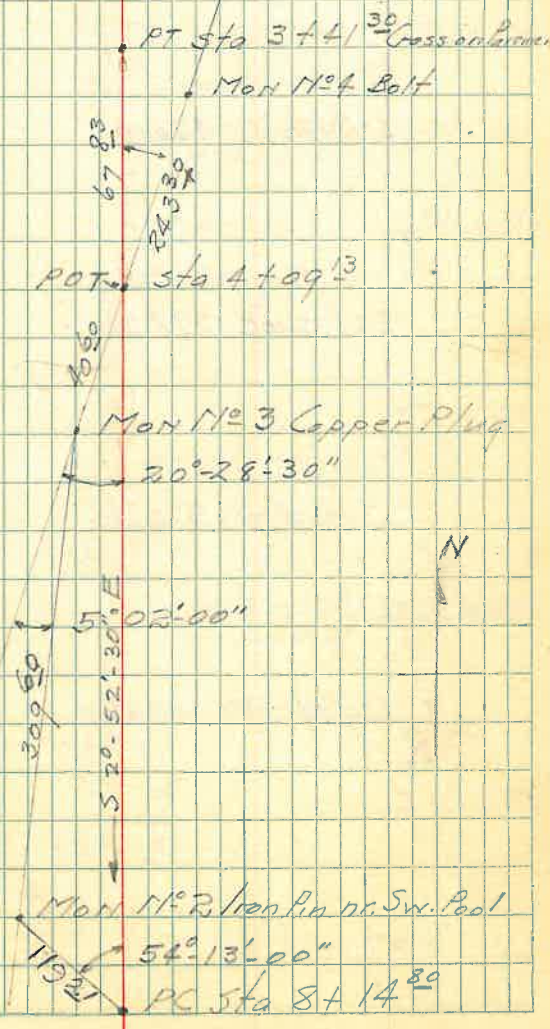 PT sta 3+41 30 Cross on Pavemen
Mon No 4 Bolt
67 83
243 30
POT sta 4+09 13
40 60
Mon No 3 Copper Plug
20°-28'-30"
N
5°02'-00"
S 2°-52'-30" E
309 60
Mon No 2, Iron Pin nr. Sw. Pool
54°-13'-00"
PC Sta 8+14 80